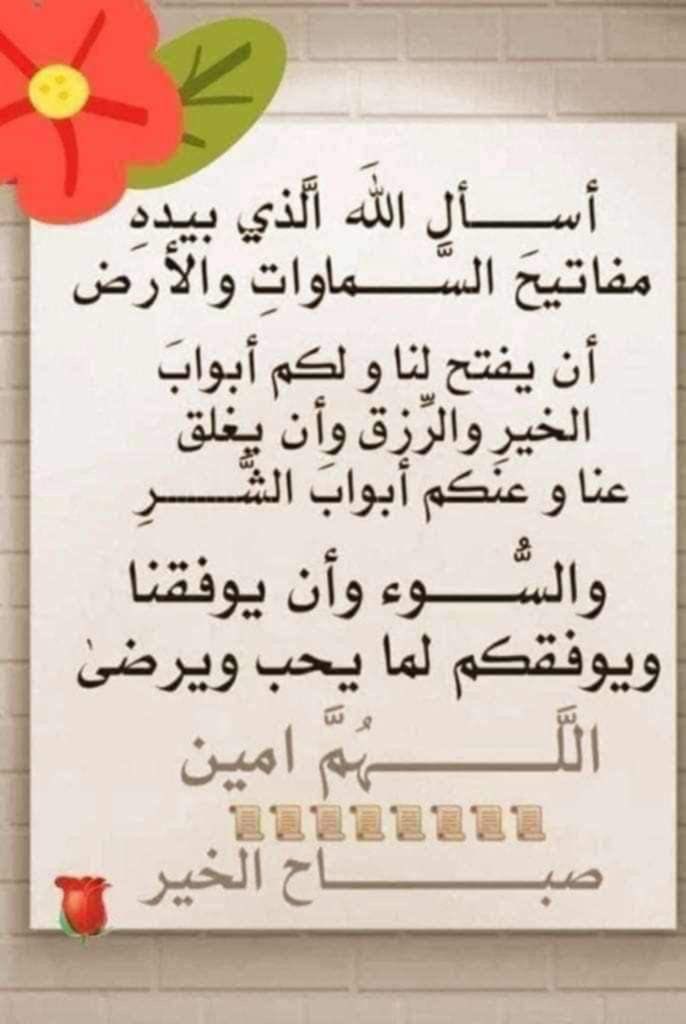 أســـــأل اللَه الَّذي بيدهِ
مفاتيحَ السَّـــــماواتِ والأرَض
أن يفتح لنا و لكم أبوابَ
الخيرِ والرِّزق وأن يغلق
عنا و عنكم أبوابَ الشَّـــــرِ
والسُّـــــوء وأن يوفقنا
ويوفقكم لما يحب ويرضىٰ
اللَّـــــــهُمَّ امين
📜📜📜📜📜📜📜📜
صبـــــــــاح الخير